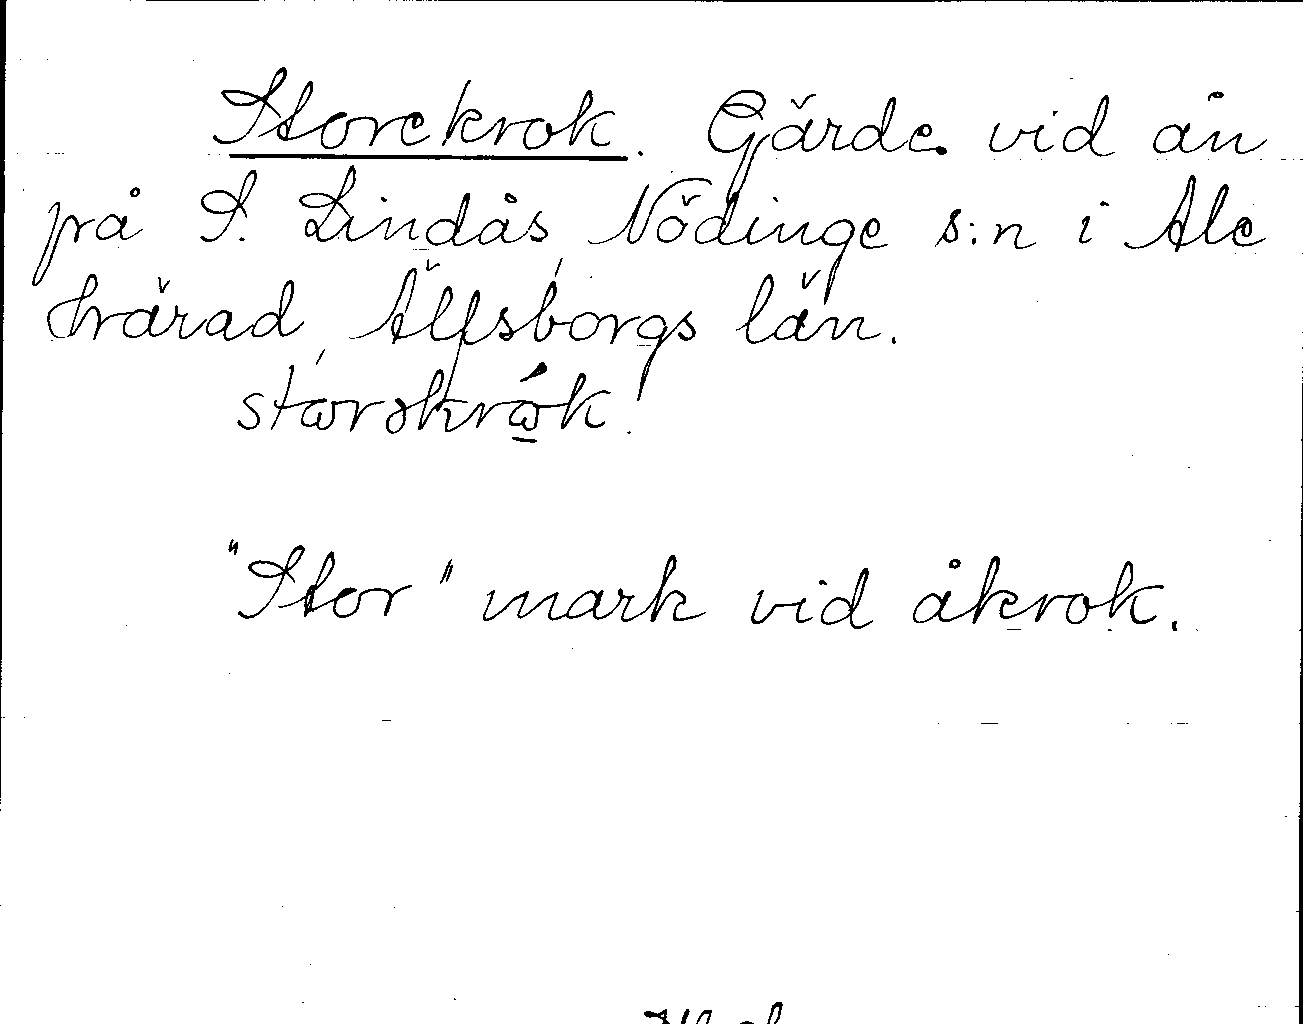 Storekrok. Gärde vid ån
på S. Lindås, Nödinge s:n i Ale
härad, Älfsborgs län.

"Stor" mark vid åkrok.